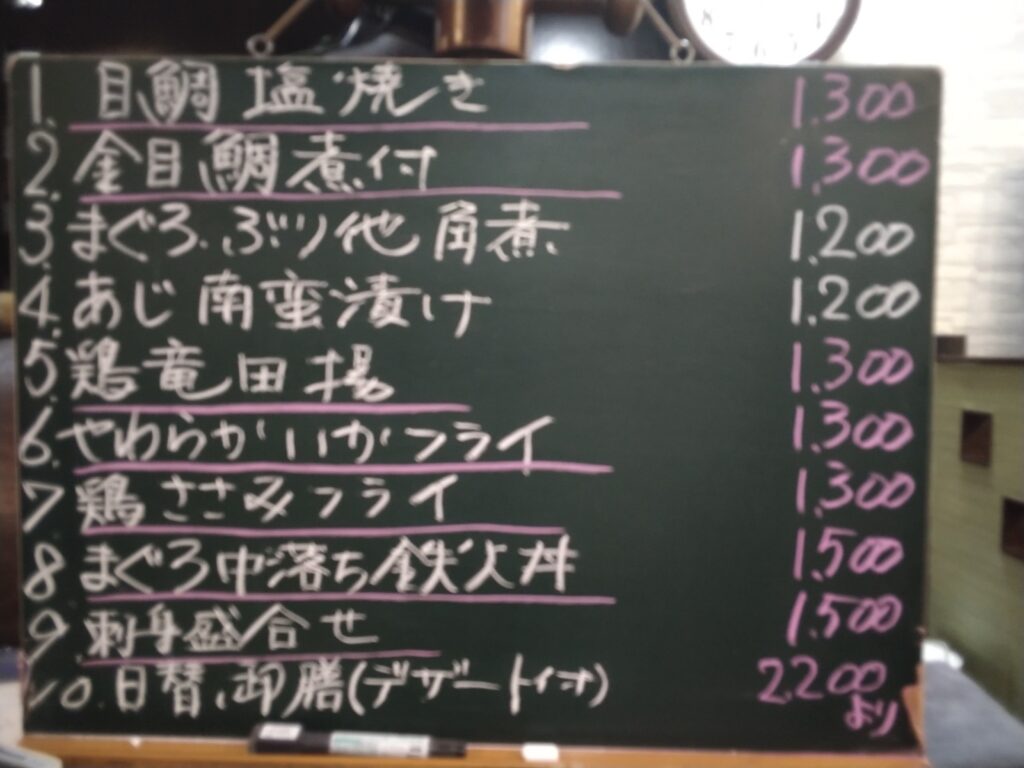 1. 目鯛塩焼き 1.300
2. 金目鯛煮付 1.300
3 まぐろ.ぶり他角煮 1.200
4. あじ南蛮漬け 1.200
5. 鶏竜田揚 1.300
6. やわらかいかフライ 1.300
7 鶏ささみフライ 1.300
8 まぐろ中落ち鉄火丼 1.500
9. 刺身盛合せ 1.500
10. 日替御膳(デザート付) 2.200
より